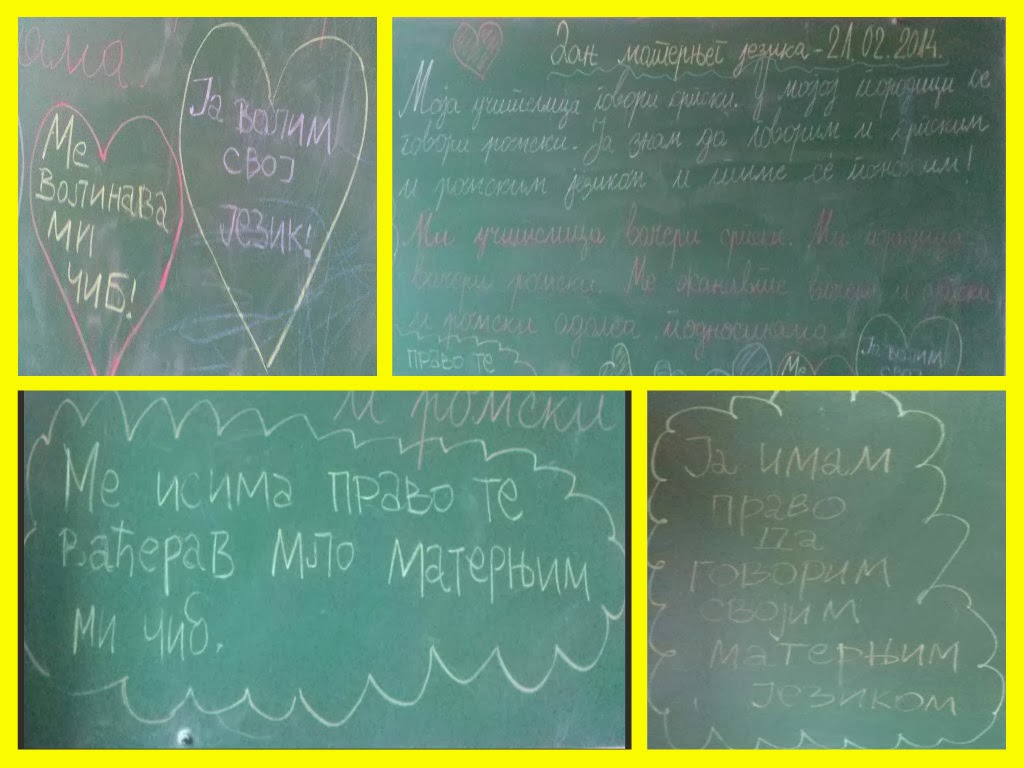 ама
Ме
волинава
ми
чиб!
Ја волим
свој
језик!
Дан матерњег језика - 21.02.2014.
Моја учитељица говори српски. У мојој породици се
говори ромски. Ја знам да говорим и српским
и ромским језиком и тиме се поносим!
Ми учитељицаваћери српски. Ми
ваћери ромски. Ме ваћери и српски
и ромски одолеа
право те
Ме
Ја волим
свој
и ромски
Ме исима право те
ваћерав мло матерњим
ми чиб.
Ја имам
право
да
говорим
својим
матерњим
језиком